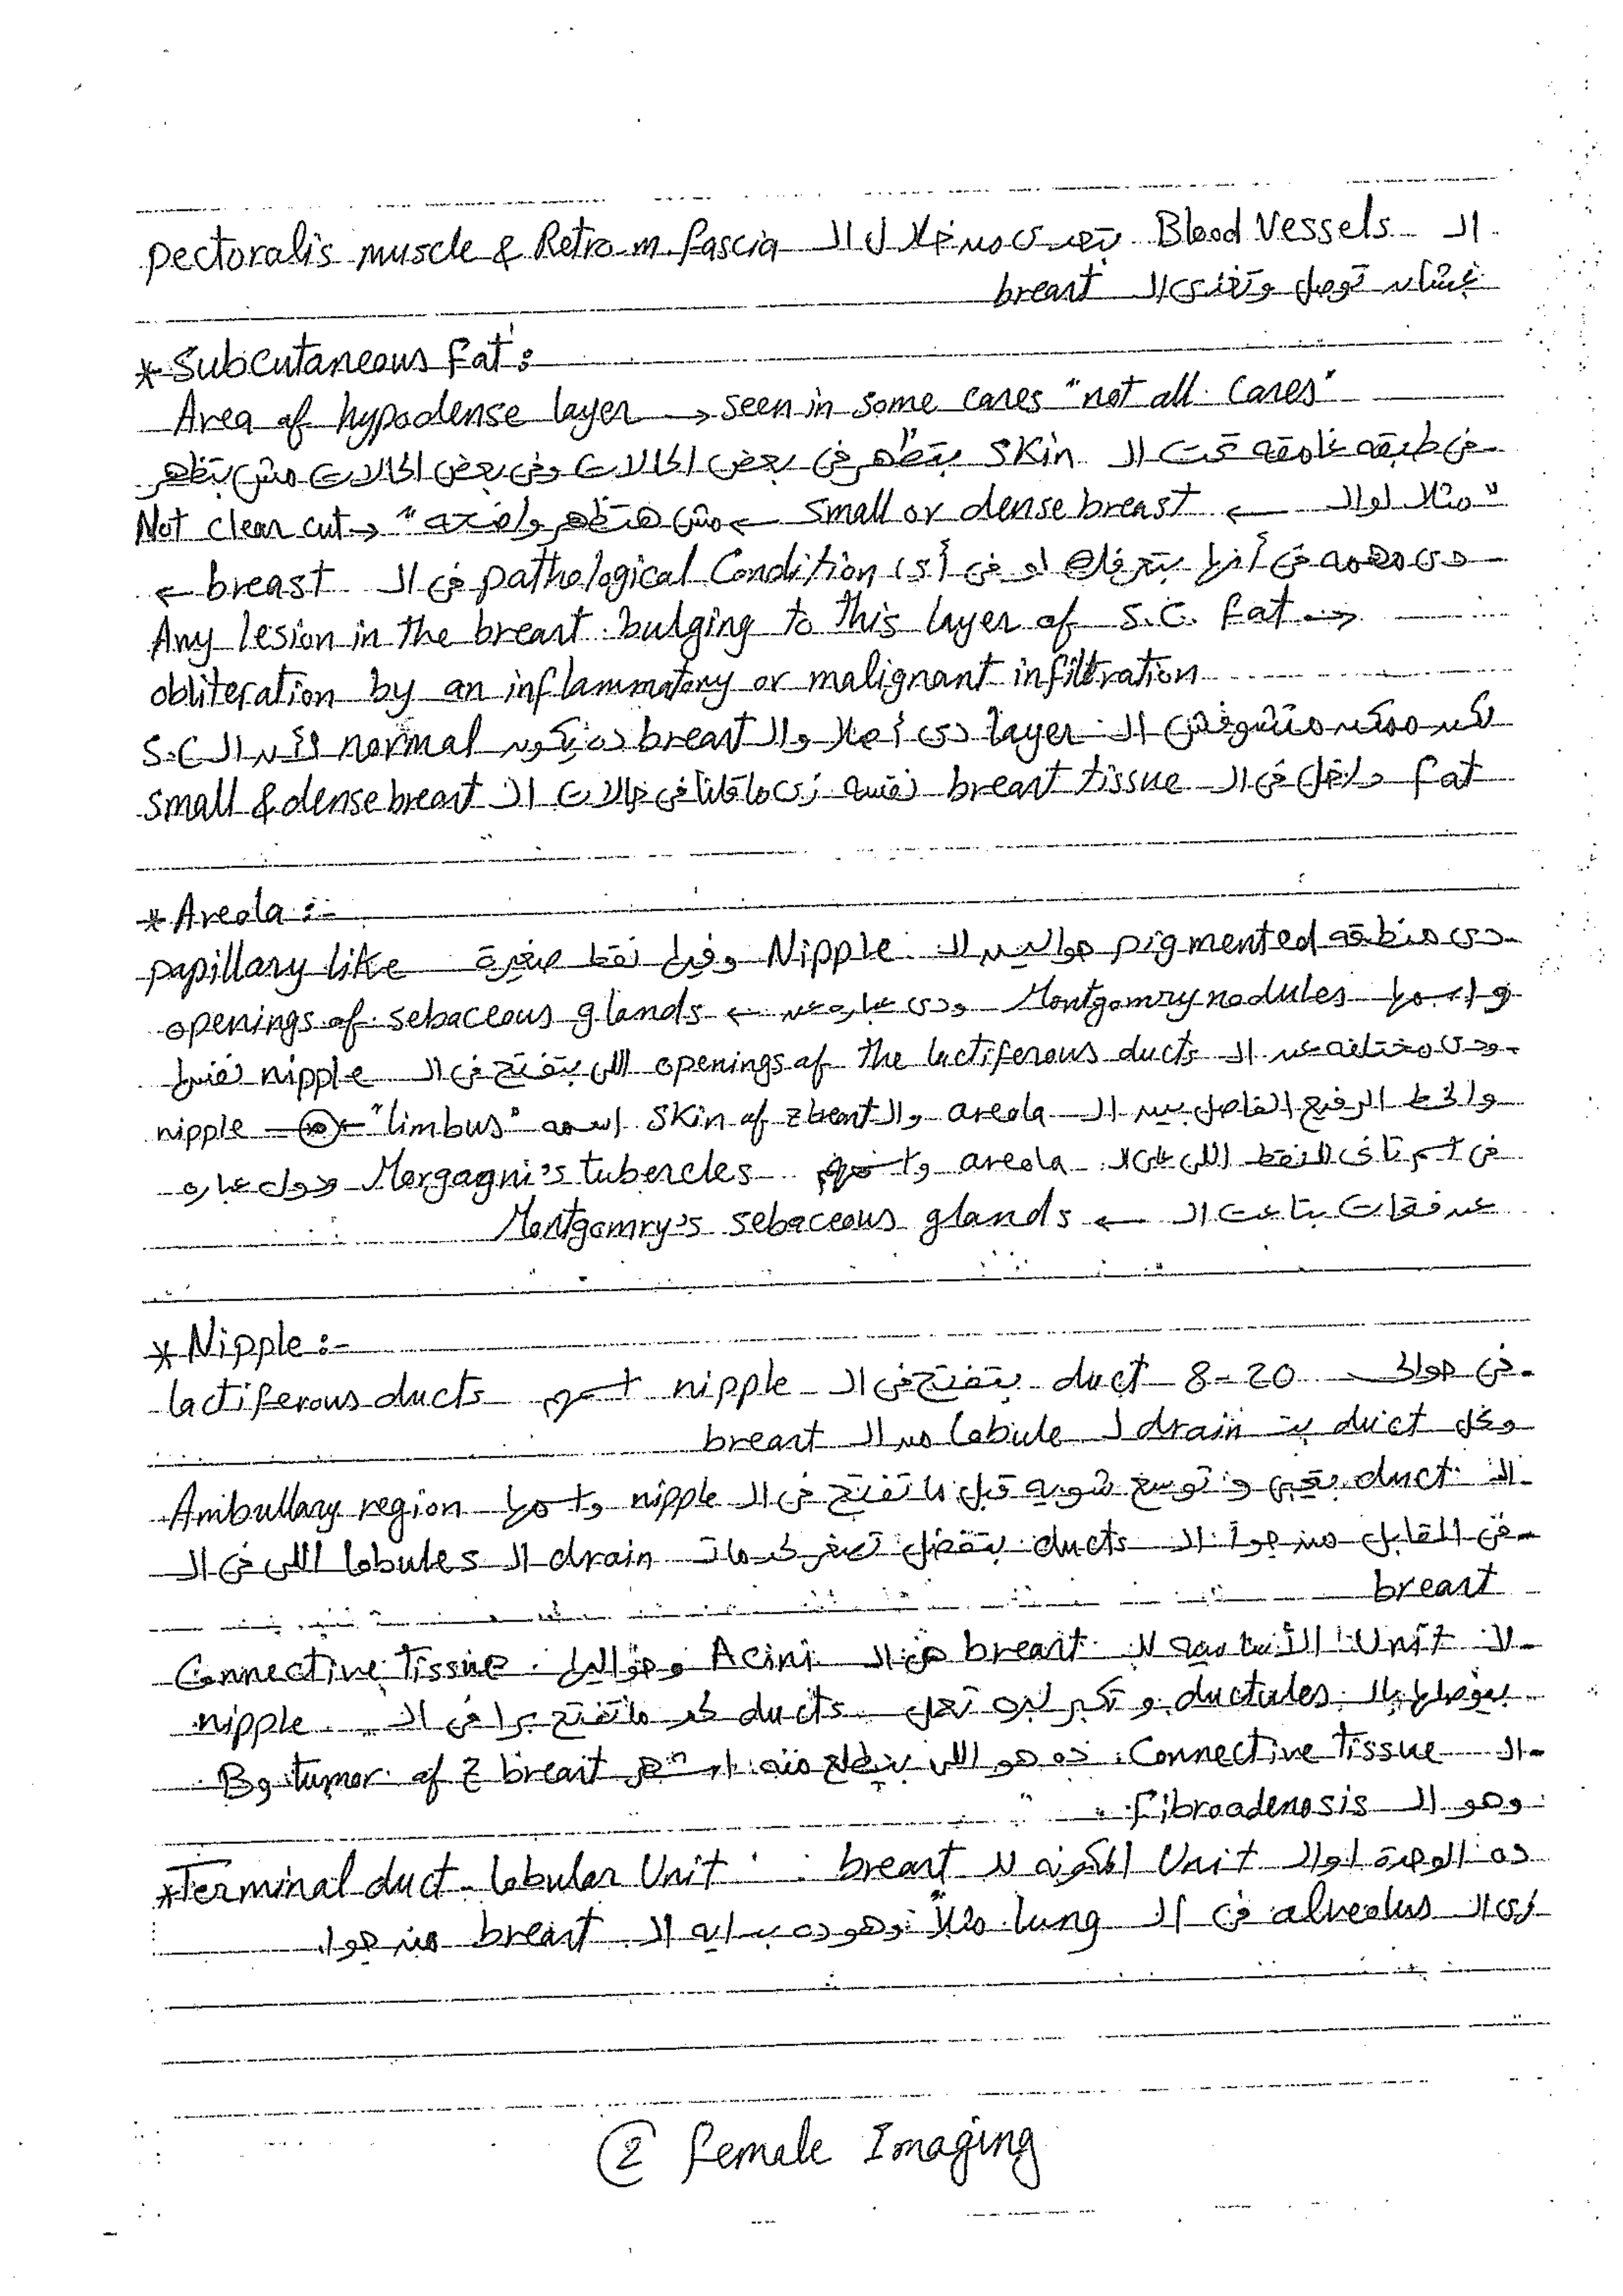 الـ Blood Vessels بتعدى من خلال الـ pectoralis muscle & Retro m. fascia
عشان توصل وتغذى الـ breast
* Subcutaneous Fat:
Area of hypodense layer → seen in some cares "not all cares"
فى طبقه غامقه تحت الـ skin بتظهر فى بعض الحالات وفى بعض الحالات مش بتظهر
"مثلا لو الـ ← small or dense breast ← مش هتظهر واضحه" → Not clear cut
دى مهمه فى أنها بتعرفك لو فى أى pathological Condition فى الـ breast ←
Any lesion in the breast bulging to this layer of S.C. fat →
obliteration by an inflammatory or malignant infiltration
لكن ممكن متشوفش الـ layer دى أصلا والـ breast ده يكون normal لأن الـ S.C
fat داخل فى الـ breast tissue نفسه زى ما قلنا فى حالات الـ small & dense breast
* Areola :-
دى منطقه pigmented حوالين الـ Nipple وفيها نقط صغيرة papillary like
واسمها Montgomry nodules ودى عباره عن ← openings of sebaceous glands
ودى مختلفه عن الـ openings of the lactiferous ducts اللى بتفتح فى الـ nipple نفسها
والخط الرفيع الفاصل بين الـ areola والـ skin of z breast اسمه "limbus" ← nipple
فى اسم تانى للنقط اللى على الـ areola واسمهم Morgagni's tubercles ودول عباره
عن فتحات بتاعت الـ ← Montgomry's sebaceous glands
* Nipple :-
فى حوالى 8-20 duct بتفتح فى الـ nipple اسمهم lactiferous ducts
وكل duct بت drain لـ lobule من الـ breast
الـ duct بقى و توسع شويه قبل ما تفتح فى الـ nipple واسمها Ambullary region
فى المقابل من جوا الـ ducts بتفضل تصغر لحد مات drain الـ lobules اللى فى الـ
breast
الـ Unit الأساسيه لـ breast هى الـ Acini وحواليها Connective Tissue
بيوصلها بالـ ductules و تكبر لبره تعمل ducts لحد ماتفتح برا فى الـ nipple
الـ Connective Tissue ده هو اللى بيطلع منه اشهر B9 tumor of z breast
وهو الـ Fibroadenosis
ده الوحدة او الـ Unit المكونه لـ breast * Terminal duct-lobular Unit
زى الـ alveolus فى الـ lung مثلاً وهو ده بدايه الـ breast من جوا.
② Female Imaging